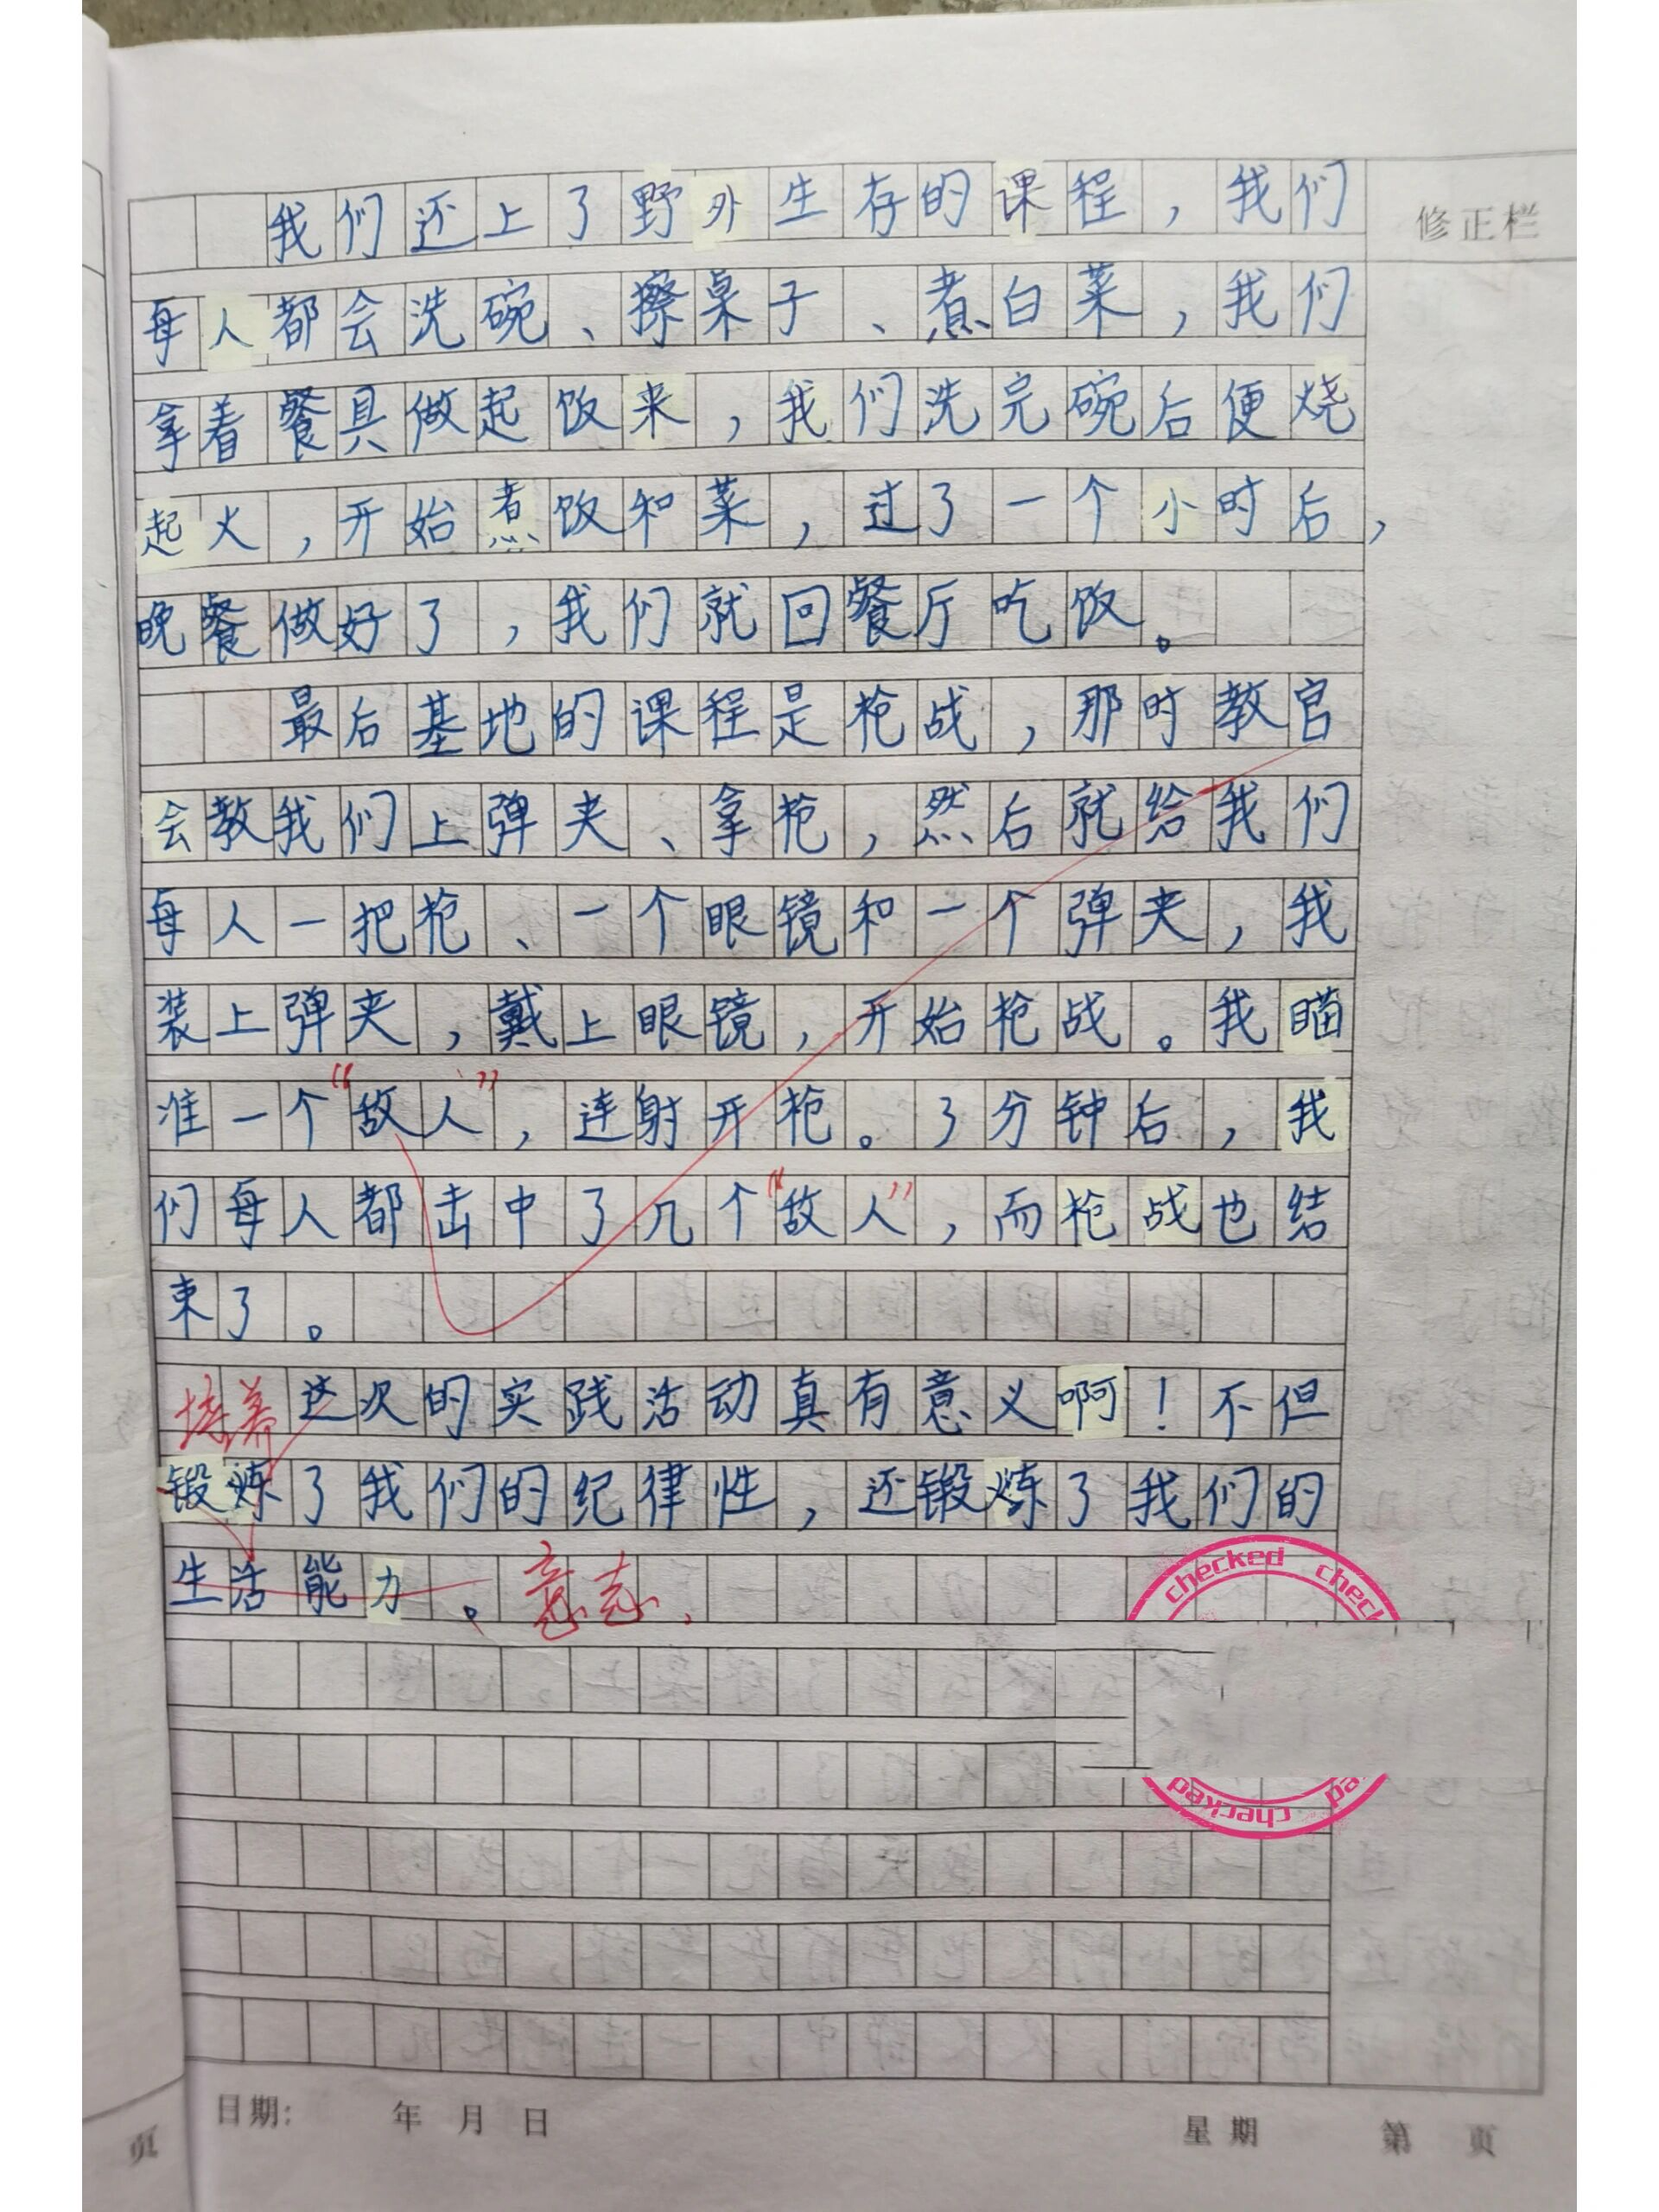 修正栏
我们还上了野外生存的课程，我们
每人都会洗碗、擦桌子、煮白菜，我们
拿着餐具做起饭来，我们洗完碗后便烧
起火，开始煮饭和菜，过了一个小时后，
晚餐做好了，我们就回餐厅吃饭。
最后基地的课程是枪战，那时教官
会教我们上弹夹、拿枪，然后就给我们
每人一把枪、一个眼镜和一个弹夹，我
装上弹夹，戴上眼镜，开始枪战。我瞄
准一个“敌人”，连射开枪。3分钟后，我
们每人都击中了几个“敌人”，而枪战也结
束了。
培养
这次的实践活动真有意义啊！不但
锻炼了我们的纪律性，还锻炼了我们的
生活能力。意志
checked checked
checked
日期： 年 月 日 星期 第 页
页